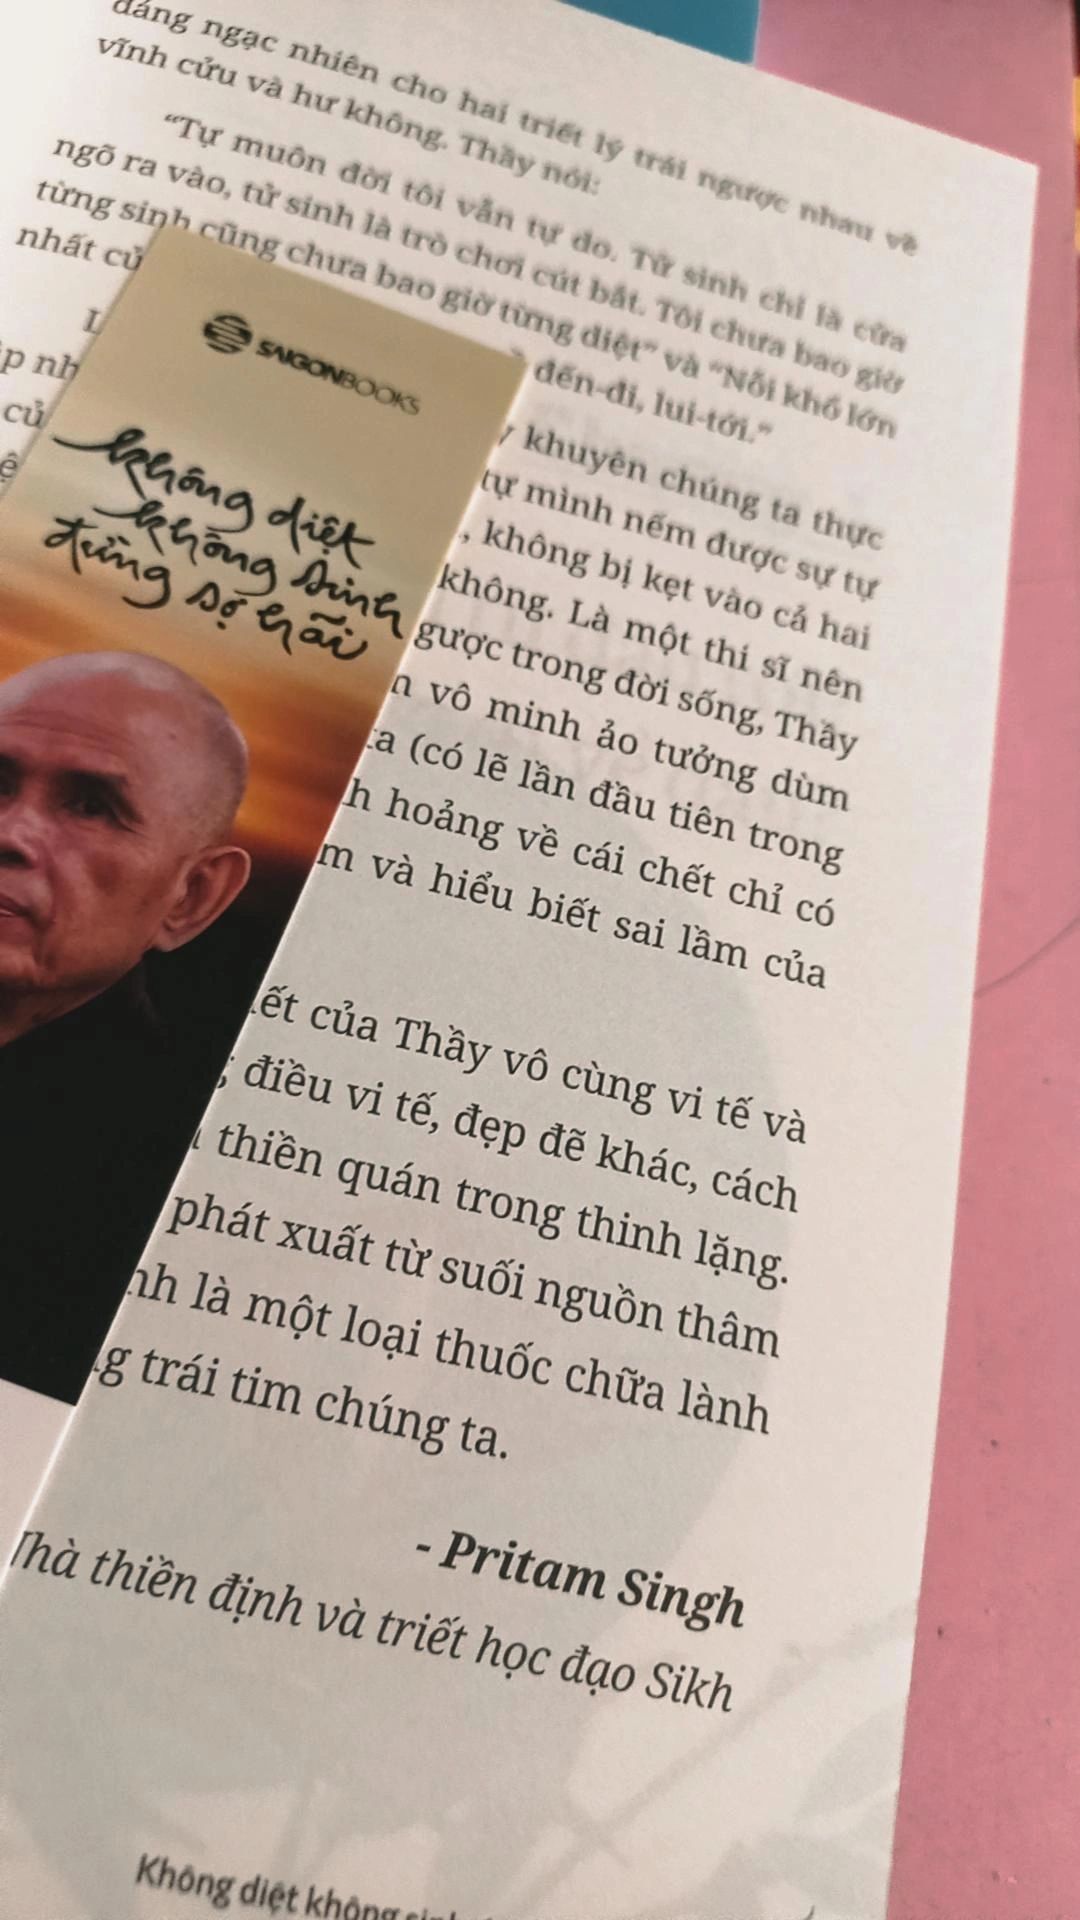 đáng ngạc nhiên cho hai triết lý trái ngược nhau về
vĩnh cửu và hư không. Thầy nói:
“Tự muôn đời tôi vẫn tự do. Tử sinh chỉ là cửa
ngõ ra vào, tử sinh là trò chơi cút bắt. Tôi chưa bao giờ
từng sinh cũng chưa bao giờ từng diệt” và “Nỗi khổ lớn
nhất đến-đi, lui-tới.”
khuyên chúng ta thực
tự mình nếm được sự tự
, không bị kẹt vào cả hai
không. Là một thi sĩ nên
trong đời sống, Thầy
vô minh ảo tưởng dùm
(có lẽ lần đầu tiên trong
hoảng về cái chết chỉ có
và hiểu biết sai lầm của
của Thầy vô cùng vi tế và
điều vi tế, đẹp đẽ khác, cách
thiền quán trong thinh lặng.
phát xuất từ suối nguồn thâm
là một loại thuốc chữa lành
trái tim chúng ta.
- Pritam Singh
Nhà thiền định và triết học đạo Sikh
Không diệt không
SAIGONBOOKS
không diệt
không sinh
đừng sợ hãi